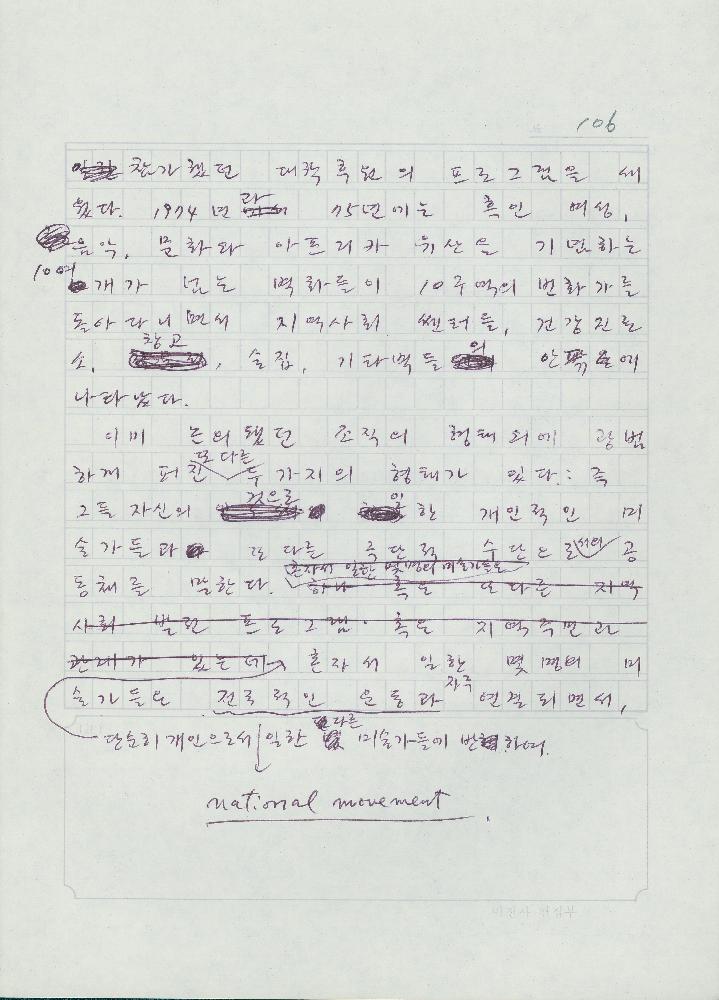 106
참가했던 대학 후원의 프로그램을 세
웠다. 1974년과 75년에는 흑인 여성,
음악, 문화와 아프리카 유산을 기념하는
10여
개가 넘는 벽화들이 10구역의 번화가를
돌아다니면서 지역사회 쎈터들, 건강진료
창고
소, , 술집, 기타벽들의 안팎에
나타났다.
이미 논의됐던 조직의 형태 외에 광범
또 다른
하게 퍼진 두 가지의 형태가 있다.: 즉
것으로
그들 자신의 일한 개인적인 미
술가들과 또 다른 극단적 수단으로서의 공
혼자서 일한 몇명의 미술가들은
동체를 말한다. 하나 혹은 또다른 지역
사회 벌린 프로그램. 혹은 지역주민과
관계가 있는데 혼자서 일한 몇명의 미
자주
술가들은 전국적인 운동과 연결되면서,
다른
단순히 개인으로서 일한 미술가들에 반하여.
national movement.
비전사 편집부